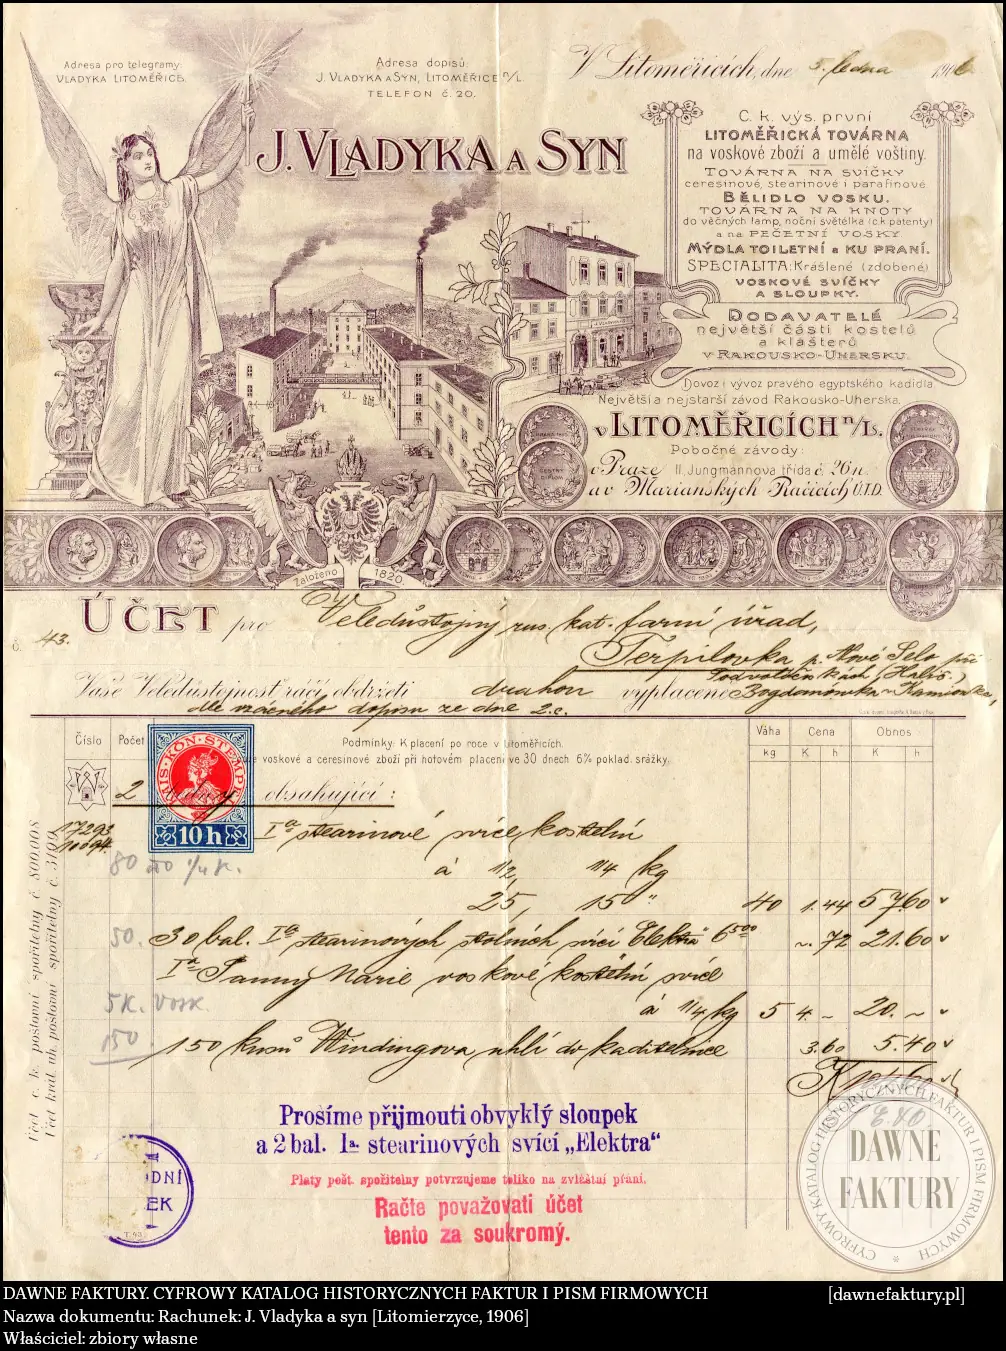 Adresa pro telegramy:
VLADYKA LITOMĚŘICE.
Adresa dopisů
J. VLADYKA A SYN, LITOMĚŘICE n/L.
TELEFON č. 20.
V Litoměřicích, dne 5. ledna 1906
J. VLADYKA A SYN
C. k. výs. první
LITOMĚŘICKÁ TOVÁRNA
na voskové zboží a umělé voštiny.
TOVÁRNA NA SVÍČKY
ceresinové, stearinové i parafinové
BĚLIDLO VOSKU.
TOVÁRNA NA KNOTY
do věčných lamp, noční světélka (c.k. patenty)
a na PEČETNÍ VOSKY
MÝDLA TOILETNÍ a KU PRANÍ.
SPECIALITA: Krášlené (zdobené)
VOSKOVÉ SVÍČKY
A SLOUPKY.
DODAVATELÉ
největší části kostelů
a klášterů
v RAKOUSKO-UHERSKU.
Dovoz i vývoz pravého egyptského kadidla
Největší a nejstarší závod Rakousko-Uherska.
v LITOMĚŘICÍCH n/L.
Pobočné závody:
v Praze II. Jungmannova třída č. 26 n.
a v Marianských Račicích Ú.T.D.
Založeno 1820.
ÚČET pro Veledůstojný rus. kat. farní úřad,
č. 43.
Terpilovka p. Nové Selo při
Podvoločiskách (Halič.)
Vaše Veledůstojnost ráčí obdržeti drahou vyplaceně Bogdanówka-Kamionka,
dle vzácného dopisu ze dne 2. c.
Číslo
Počet
Podmínky: K placení po roce v Litoměřicích.
voskové a ceresinové zboží při hotovém placení ve 30 dnech 6% poklad. srážky.
Váha
Cena
Obnos
kg
K
h
K
h
2 obsahující:
17293
10094
Ia stearinové svíce kostelní
80
á 1/2, 1/4 kg
25, 15 " 40 1.44 57.60
50. 30 bal. Ia stearinových stolních svící Elektra 6 500 ~. 72 21.60
Ia Panny Marie voskové kostelní svíce
5 K. Vosk. á 1/4 kg 5 4. ~ 20. ~
150 150 kusů Windingova uhlí do kaditelnice 3.60 5.40
K
10 h
Účet c. k. poštovní spořitelny č. 800.008
Účet král. uh. poštovní spořitelny č. 3199
Prosíme přijmouti obvyklý sloupek
a 2 bal. Ia. stearinových svící „Elektra“
Platy pošt. spořitelny potvrzujeme toliko na zvláštní přání.
Račte považovati účet
tento za soukromý.
DNÍ
EK
CYFROWY KATALOG HISTORYCZNYCH FAKTUR I PISM FIRMOWYCH
DAWNE
FAKTURY
DAWNE FAKTURY. CYFROWY KATALOG HISTORYCZNYCH FAKTUR I PISM FIRMOWYCH [dawnefaktury.pl]
Nazwa dokumentu: Rachunek: J. Vladyka a syn [Litomierzyce, 1906]
Właściciel: zbiory własne